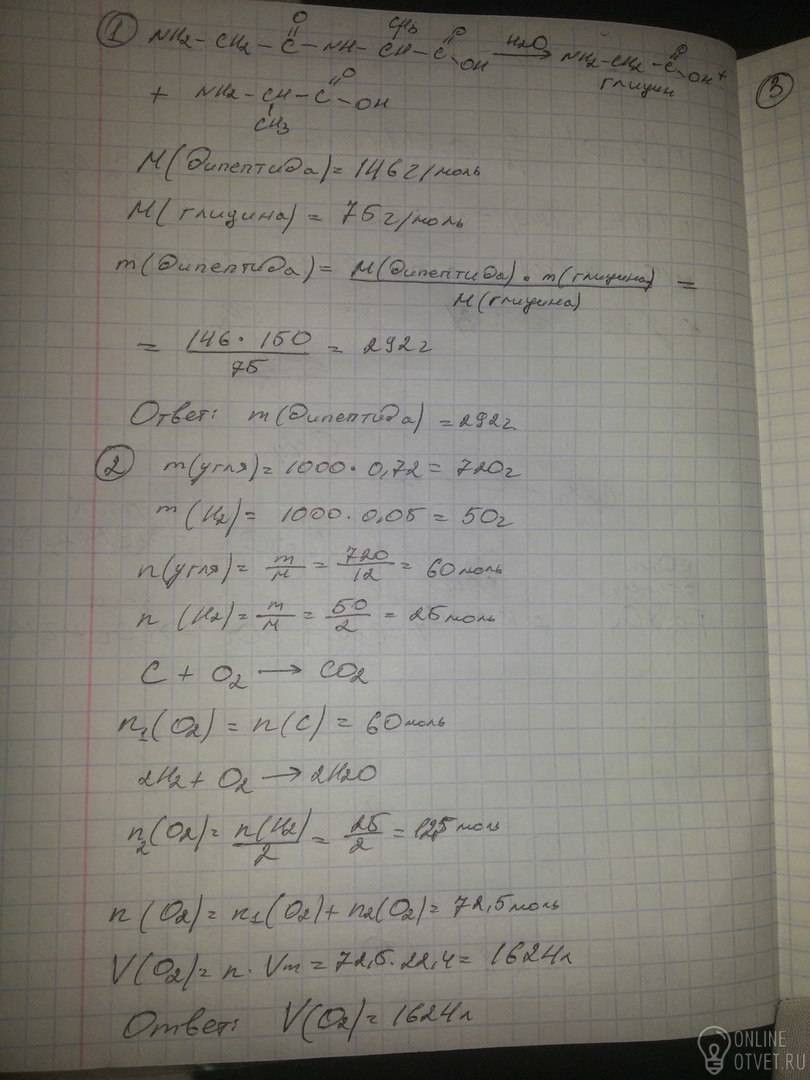 1 NH2 - CH2 - C(=O) - NH - CH(CH3) - C(=O) - OH →(H2O) NH2 - CH2 - C(=O) - OH +
глицин
+ NH2 - CH(CH3) - C(=O) - OH
M(дипептида) = 146 г/моль
M(глицина) = 75 г/моль
m(дипептида) = M(дипептида) · m(глицина) / M(глицина) =
= 146 · 150 / 75 = 292 г
Ответ: m(дипептида) = 292 г
2 m(угля) = 1000 · 0,72 = 720 г
m(H2) = 1000 · 0,05 = 50 г
n(угля) = m/M = 720/12 = 60 моль
n (H2) = m/M = 50/2 = 25 моль
C + O2 → CO2
n1(O2) = n(C) = 60 моль
2H2 + O2 → 2H2O
n2(O2) = n(H2)/2 = 25/2 = 12,5 моль
n(O2) = n1(O2) + n2(O2) = 72,5 моль
V(O2) = n · Vm = 72,5 · 22,4 = 1624 л
Ответ: V(O2) = 1624 л
3
ONLINE
OTVET.RU